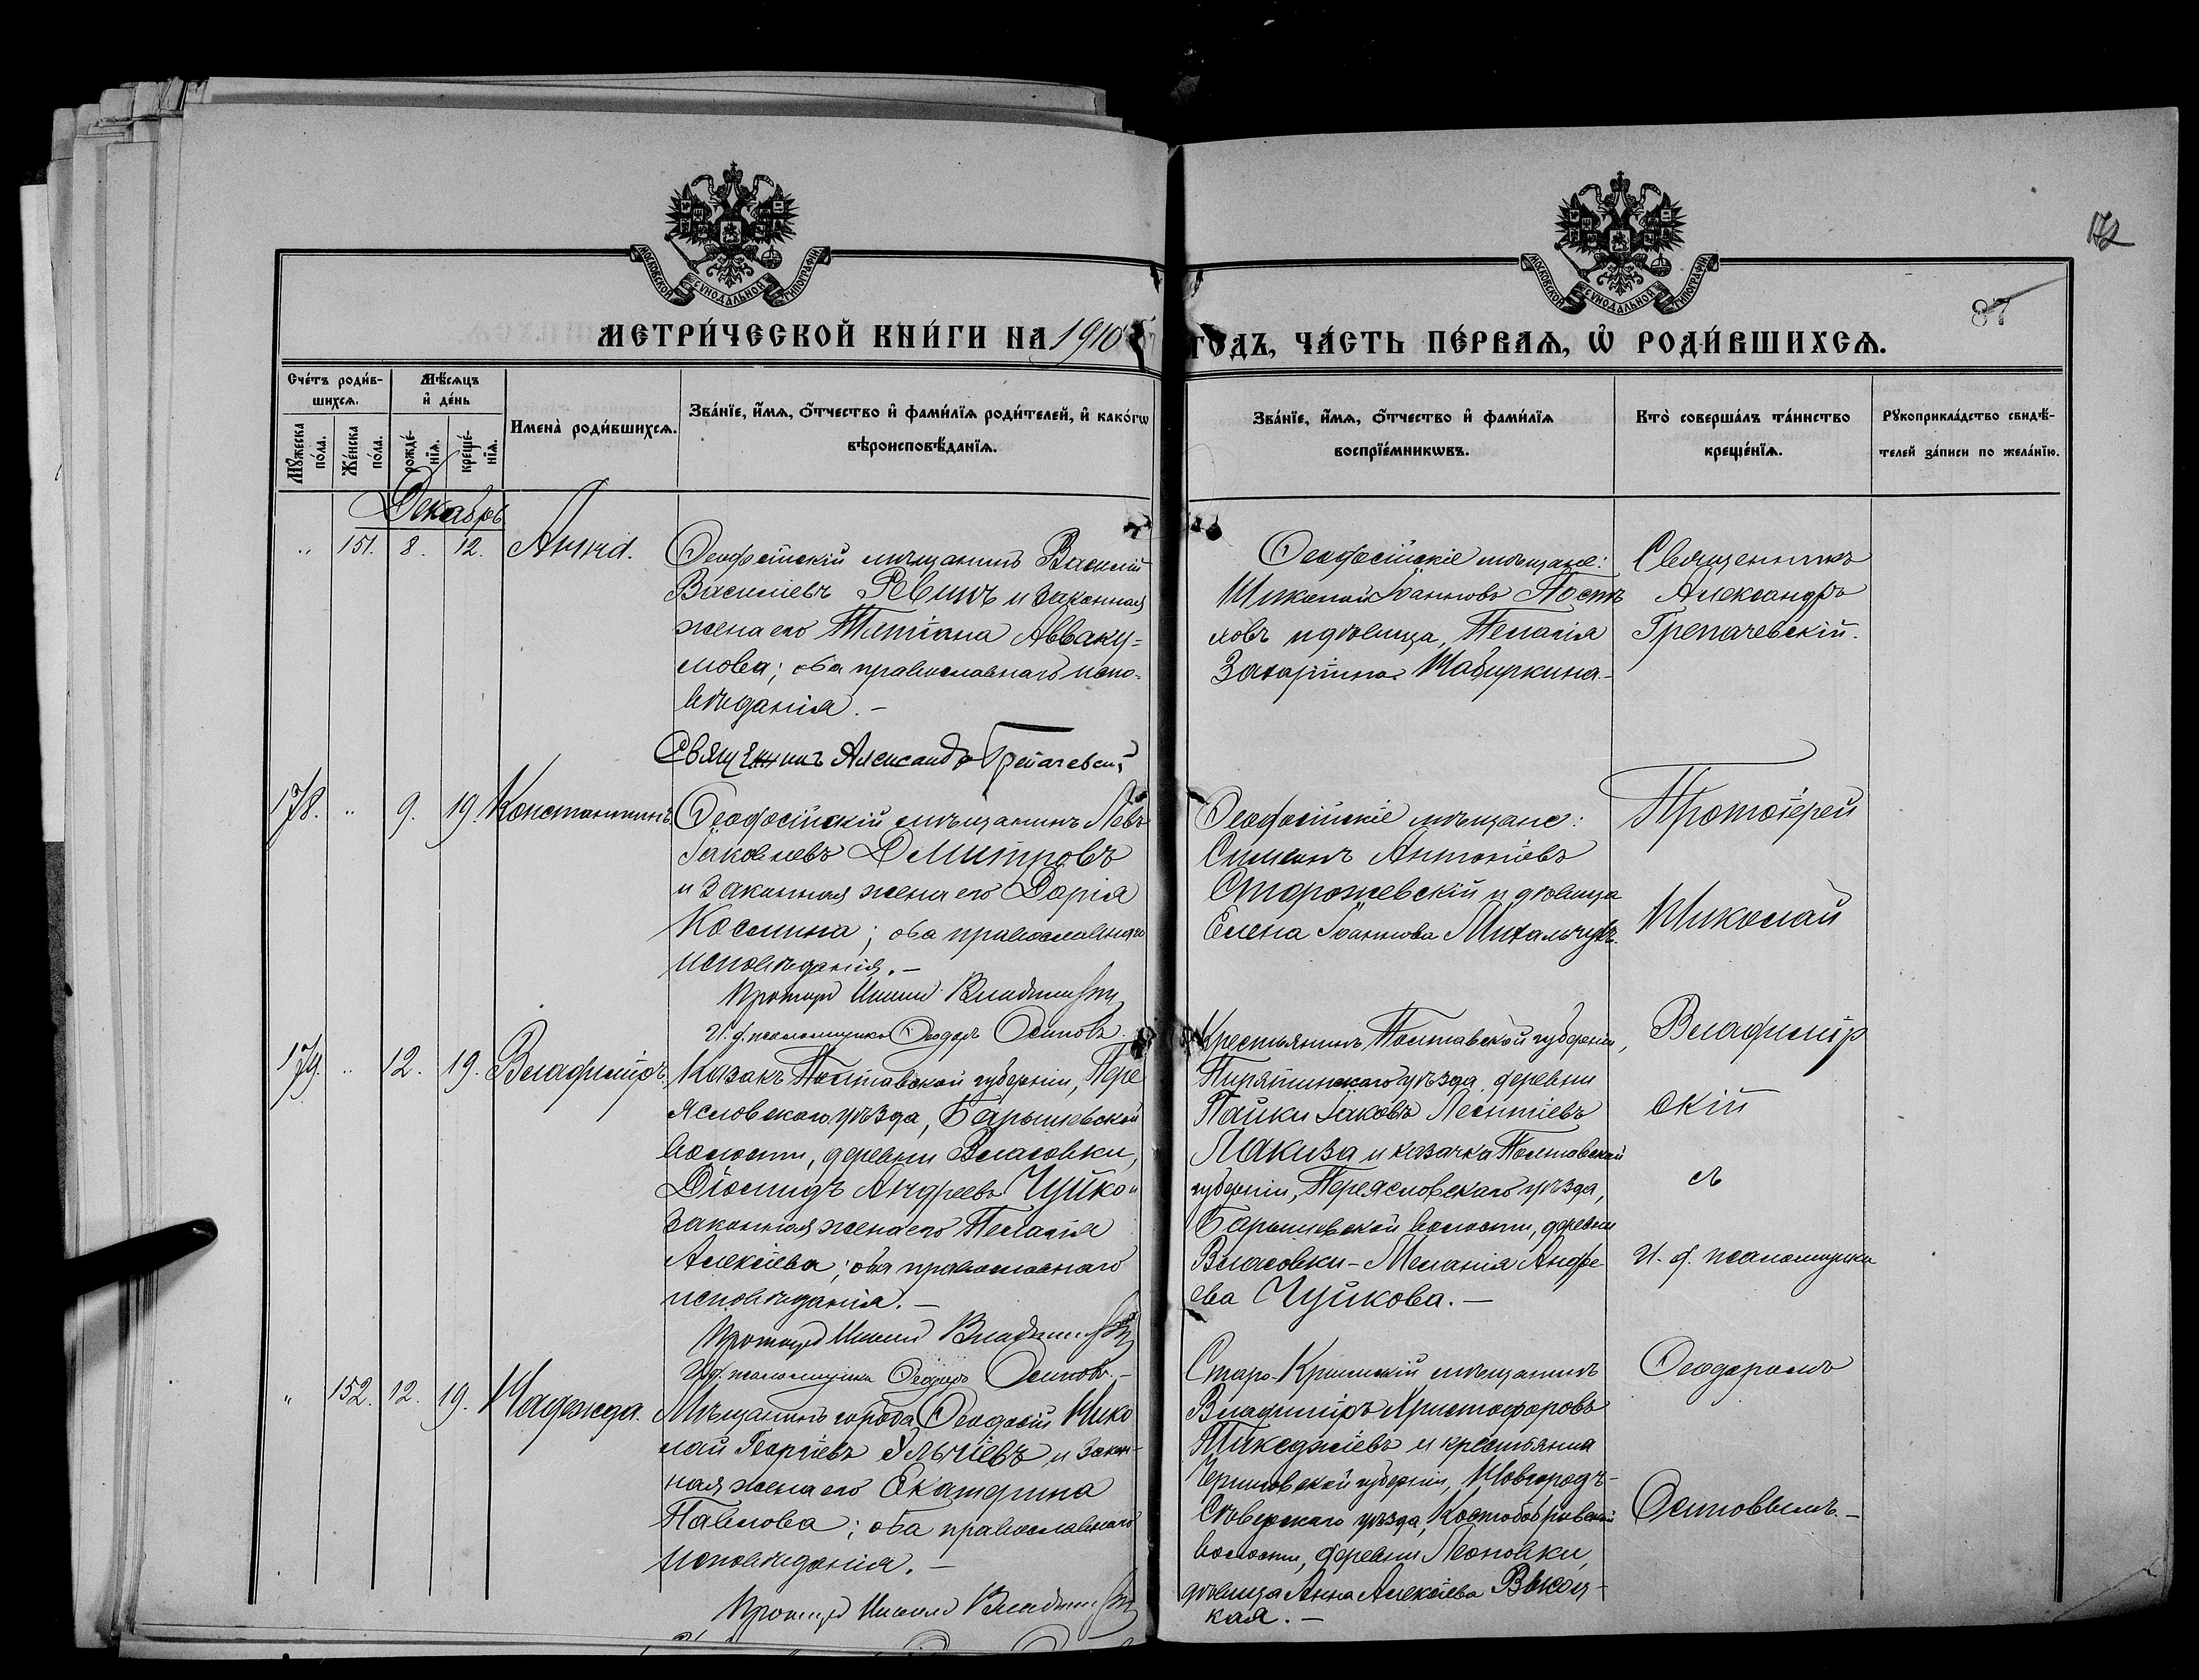 172
87
МОСКОВСКОЙ СѴНОДАЛЬНОЙ ТИПОГРАФІИ
МОСКОВСКОЙ СѴНОДАЛЬНОЙ ТИПОГРАФІИ
МЕТРИ́ЧЕСКОЙ КНИ́ГИ НА 1910
ГОДЪ, ЧА́СТЬ ПЕ́РВАѦ, Ѡ РОДИ́ВШИХСѦ.
Сче́тъ роди́в-
шихсѧ.
Мѣ́сѧцъ
и҆ де́нь
Мꙋ́жеска
по́ла.
Же́нска
по́ла.
рожде́-
нїѧ.
креще́-
нїѧ.
Имена̀ роди́вшихсѧ.
Зва́нїе, и҆́мѧ, ѻ҆́тчество и҆ фами́лїѧ роди́телей, и҆ како́гѡ
вѣроисповѣ́данїѧ.
Зва́нїе, и҆́мѧ, ѻ҆́тчество и҆ фами́лїѧ
воспрїе́мникѡвъ.
Кто̀ соверша́лъ та́инство
креще́нїѧ.
Рꙋкоприкла́дство свидѣ́-
телей за́писи по жела́нїю.
Декабрь
" 151. 8. 12. Анна.
Ѳеодосійскій мѣщанинъ Василій
Васильевъ Ревинъ и законная
жена его Татіана Авваку-
мова; оба православнаго испо-
вѣданія. –
Священникъ Александръ Грепачевскій
Ѳеодосійскіе мѣщане:
Николай Іоанновъ Пост
ховъ и дѣвица, Пелагія
Захаріина Шабуркина. –
Священникъ
Александръ
Грепачевскій.
178. " 9. 19. Константинъ.
Ѳеодосійскій мѣщанинъ Левъ
Іаковлевъ Дмитровъ
и законная жена его Дарія
Космина; оба православнаго
исповѣданія. –
Протоіерей Николай Владимірскій
И. д. псаломщика Ѳеодоръ Осиповъ.
Ѳеодосійскіе мѣщане:
Симеонъ Антоніевъ
Сторожевскій и дѣвица
Елена Іоаннова Михальчукъ.
Протоіерей
Николай
Владимір
скій
съ
И. д. псаломщика
Ѳеодоромъ
Осиповымъ. –
179. " 12. 19. Владиміръ.
Казакъ Полтавской губерніи, Пере
яславскаго уѣзда, Барышевской
волости, деревни Власовки,
Діомидъ Андреевъ Чуйко и
законная жена его Пелагія
Алексіева; оба православнаго
исповѣданія. –
Протоіерей Николай Владимірскій
И. д. псаломщика Ѳеодоръ Осиповъ. –
Крестьянинъ Полтавской губерніи,
Пирятинскаго уѣзда, деревни
Пайки Іаковъ Леонтіевъ
Лакиза и казачка Полтавской
губерніи, Переяславскаго уѣзда,
Барышевской волости, деревни
Власовки – Меланія Андре
ева Чуйкова. –
" 152. 12. 19. Надежда.
Мѣщанинъ города Ѳеодосіи Нико
лай Георгіевъ Ульчіевъ и закон-
ная жена его Екатерина
Павлова; оба православнаго
исповѣданія. –
Протоіерей Николай Владимірскій
Старо-Крымскій мѣщанинъ
Владиміръ Христофоровъ
Тикеджіевъ и крестьянка
Черниговской губерніи, Новгородъ-
Сѣверскаго уѣзда, Костобобровской
волости, деревни Леоновки,
дѣвица Анна Алексіева Высоц-
кая. –